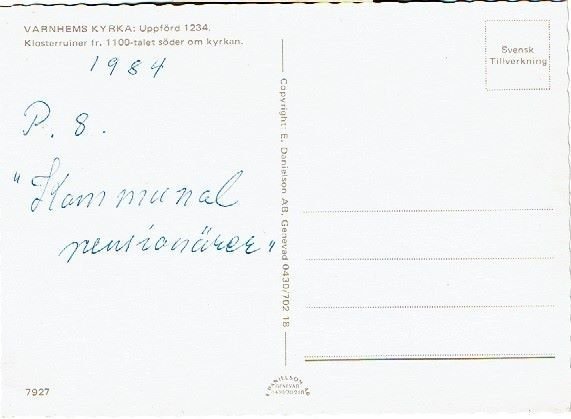 VARNHEMS KYRKA: Uppförd 1234.
Klosterruiner fr. 1100-talet söder om kyrkan.
1984
P. 8.
"Kommunal
pensionärer"
Copyright: E. Danielson AB, Genevad 0430/702 18
Svensk
Tillverkning
7927
E. DANIELSON AB
GENEVAD
0430/70218